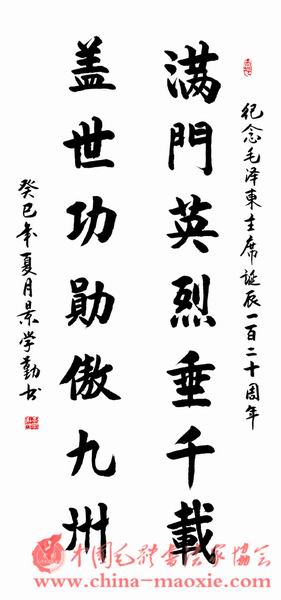 纪念毛泽東主席誕辰一百二十周年
满門英烈垂千載
盖世功勛傲九州
癸巳年夏月景学勤书
中国毛体书法家协会
www.china-maoxie.com